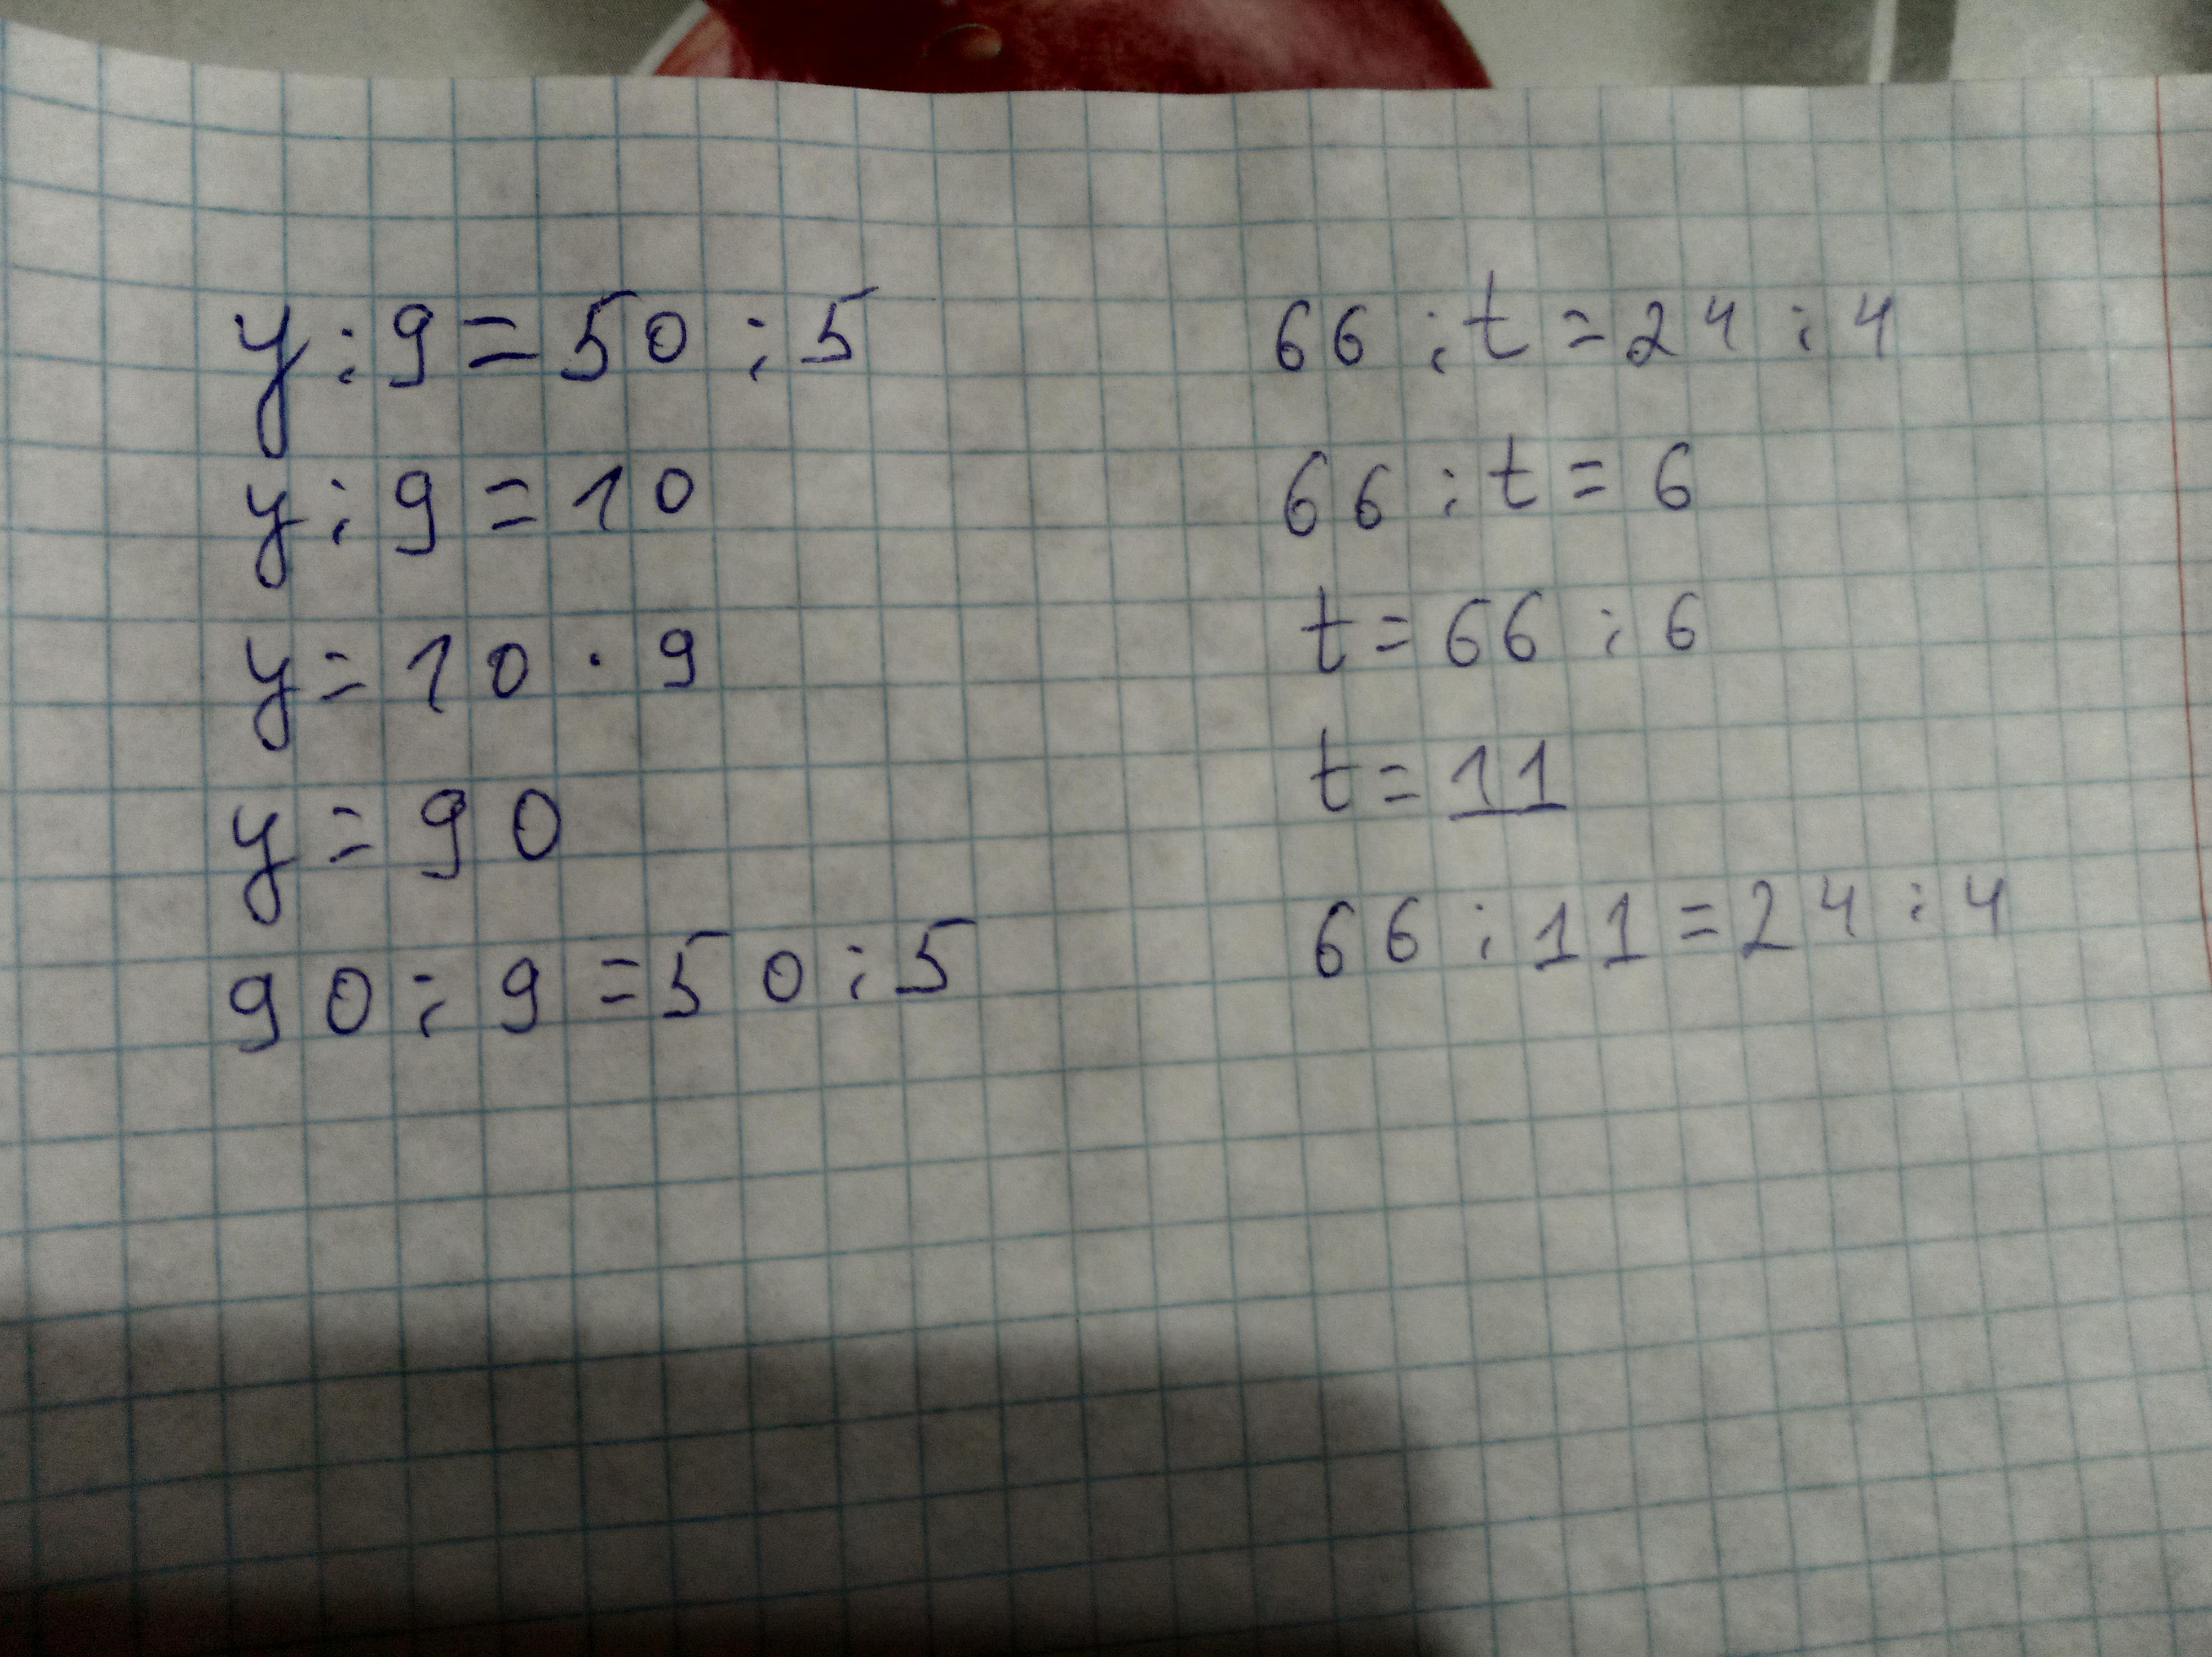 y : 9 = 50 : 5
y : 9 = 10
y = 10 · 9
y = 90
90 : 9 = 50 : 5
66 : t = 24 : 4
66 : t = 6
t = 66 : 6
t = 11
66 : 11 = 24 : 4